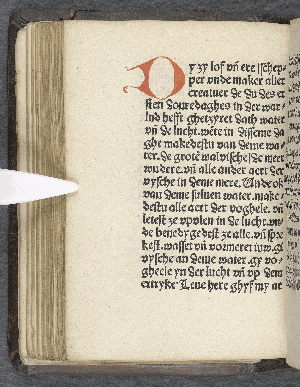 Dy zy lof vñ ere schep
per vnde maker aller
creatuer de du des er
sten donredaghes in der war
lud hefft ghetzyret dath water
vñ de lucht. wēte in disseme da
ghe makedestu van deme wa
ter. de grotē walvische des meer
wndere. vñ alle ander aert der
vyssche in deme mere. Vnde ok
van deme suluen water make
destu alle aert der voghele. vñ
letest ze vpvlen in de lucht. vñ
de benedygedest ze alle. vñ spre
kest. wasset vñ vormeret iuw. gi
vyssche an deme water. gy vo
ghele yn der lucht vñ vp dem
ertryke. Leue here ghyf my ar